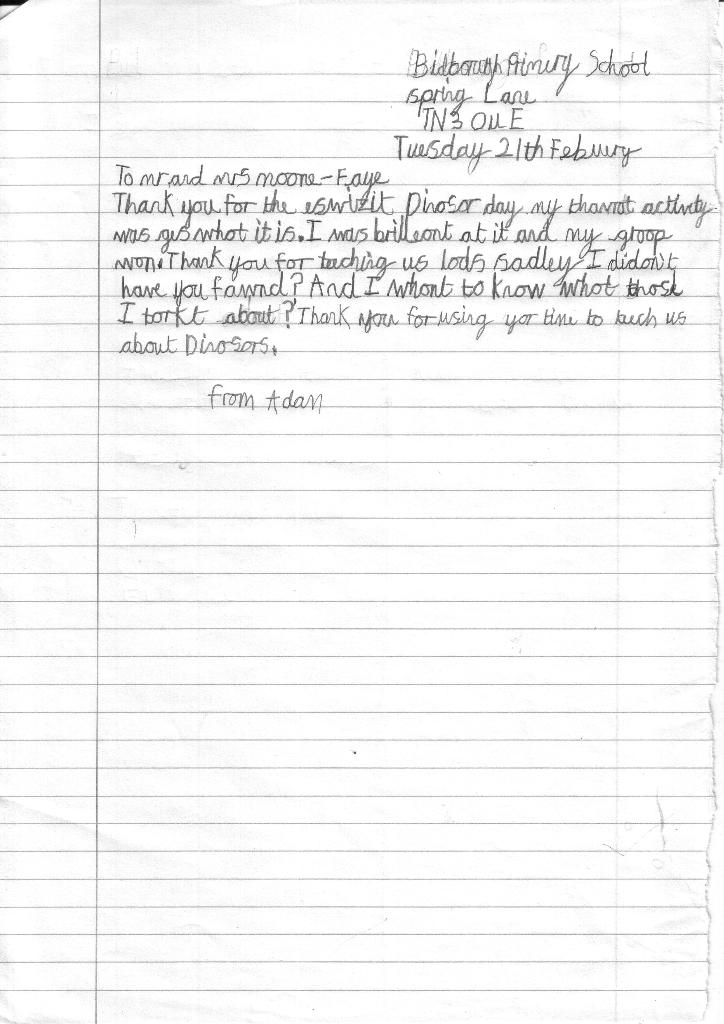 Bidborough Primery School
spring Lane
TN3 OUE
Tuesday 21th Febuery
To mr and mrs moore-Faye
Thank you for the Dinosor day my activity
was ges what it is. I was brilleont at it and my groop
won. Thank you for teaching us lods sadley I didon't
have you fawnd? And I whont to know whot those
I torkt about? Thank you for using yor time to teech us
about Dinosors.
from Adam